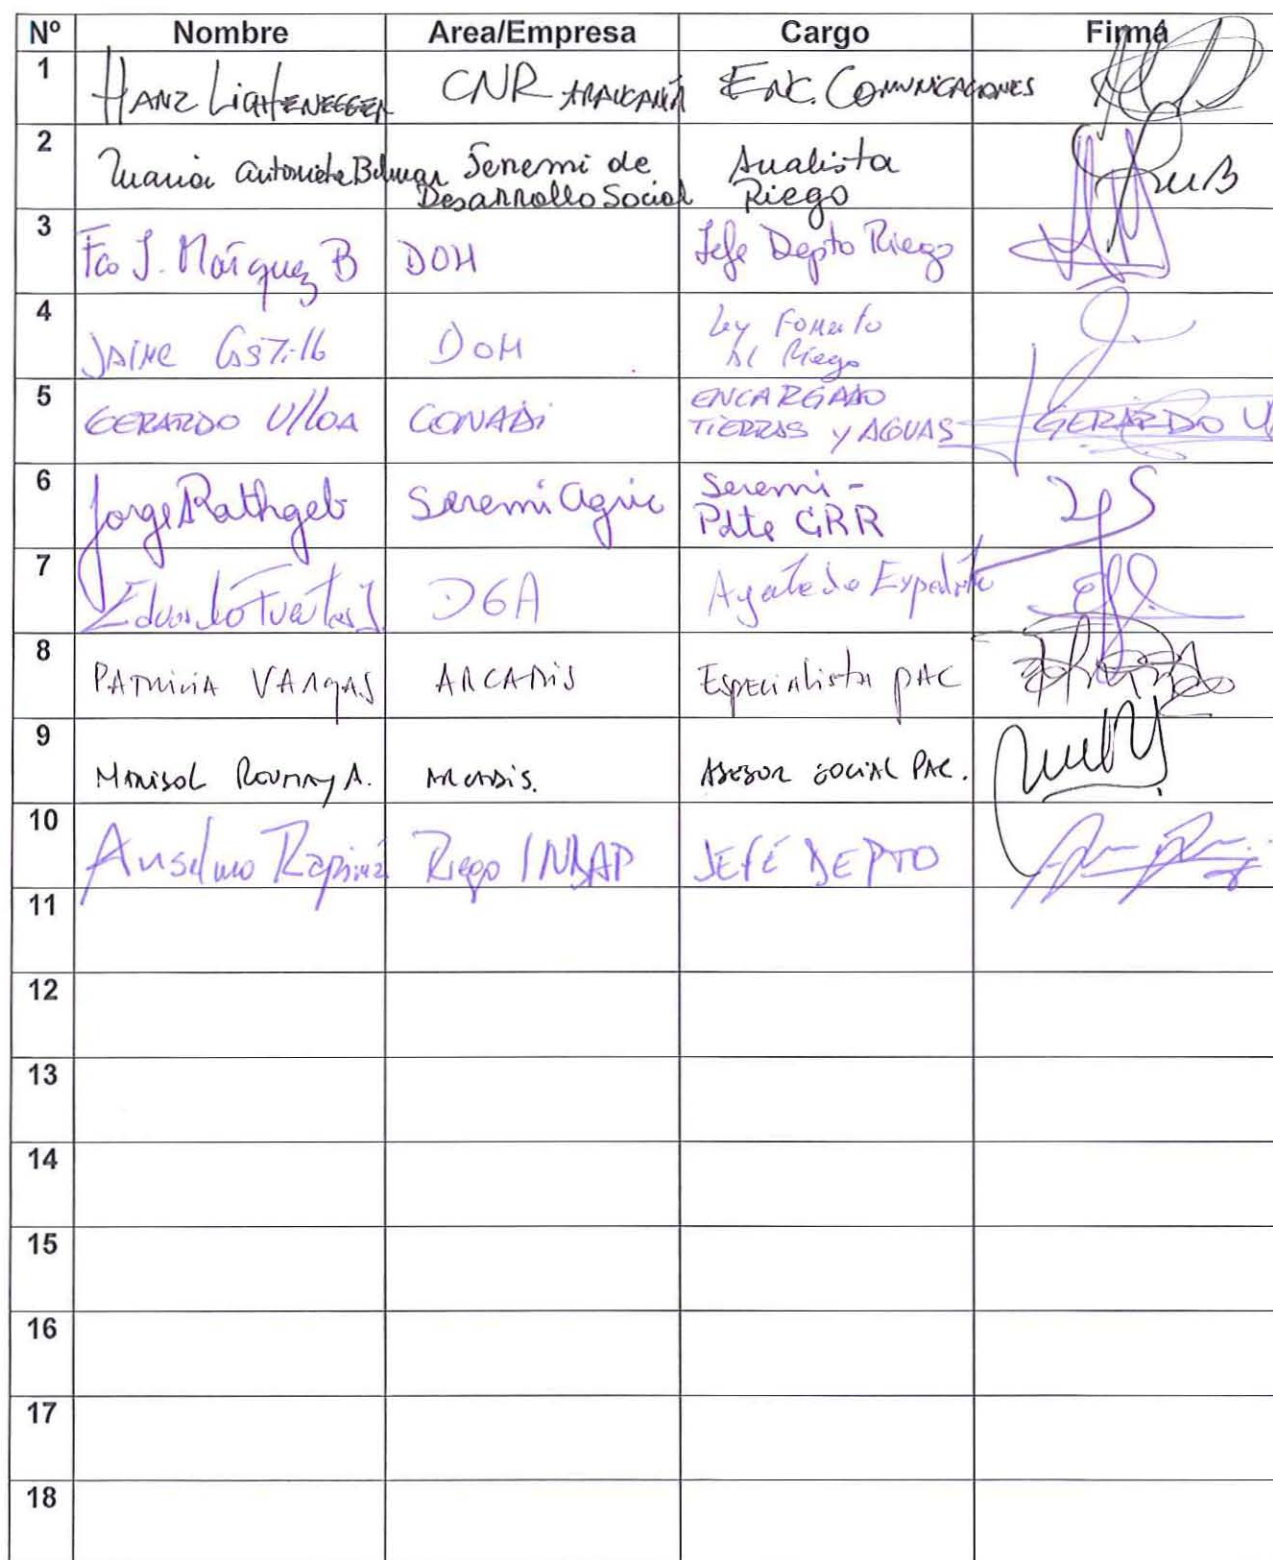 Nº Nombre Area/Empresa Cargo Firma
1 HANZ LICHTENEGGER CNR ARAUCANÍA ENC. COMUNICACIONES
2 Maria Antonieta Belmar Seremi de Desarrollo Social Analista Riego
3 Fco J. Márquez B DOH Jefe Depto Riego
4 JAIME CASTILLO DOH Ley Fomento al Riego
5 GERARDO Ulloa CONADI ENCARGADO TIERRAS Y AGUAS GERARDO U
6 Jorge Rathgeb Seremi Agric Seremi - Pdte CRR
7 Eduardo Fuentes DGA
8 PATRICIA VARGAS ARCADIS Especialista PAC
9 MARISOL A. ARCADIS. ASESOR SOCIAL PAC.
10 Anselmo Rapimán Riego INDAP JEFE DEPTO
11
12
13
14
15
16
17
18